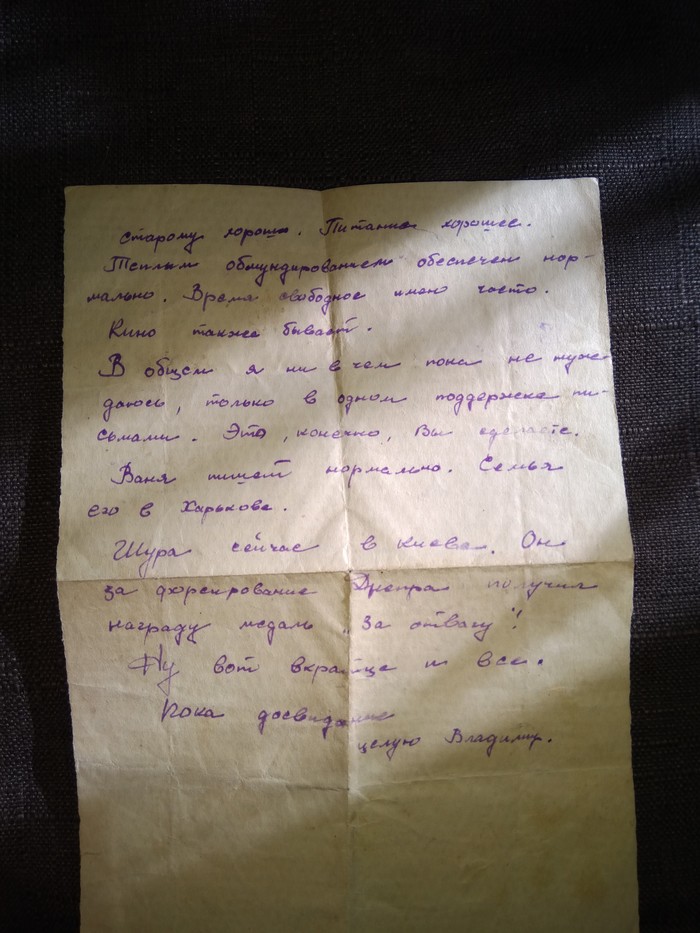 старому хорошо. Питание хорошее.
Теплым обмундированием обеспечен нор-
мально. Время свободное имею часто.
Кино также бывает.
В общем я ни в чем пока не нуж-
даюсь, только в одном поддержке пи-
сьмами. Это, конечно, Вы сделаете.
Ваня пишет нормально. Семья
его в Харькове.
Шура сейчас в Киеве. Он
за форсирование Днепра получил
награду медаль „За отвагу"!
Ну вот вкратце и все.
Пока досвидание
целую Владимир.